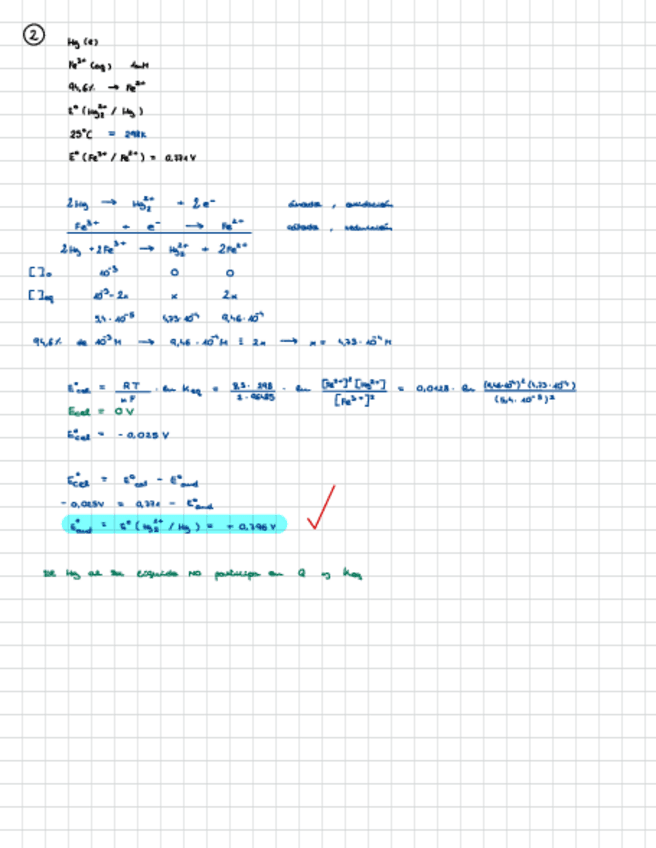 2
Hg (l)
Fe³⁺ (aq) 1mM
94,6% → Fe²⁺
E° (Hg₂²⁺ / Hg)
25°C = 298K
E° (Fe³⁺ / Fe²⁺) = 0,771V
2Hg → Hg₂²⁺ + 2e⁻ ánodo, oxidación
Fe³⁺ + e⁻ → Fe²⁺ cátodo, reducción
2Hg + 2Fe³⁺ → Hg₂²⁺ + 2Fe²⁺
[ ]₀ 10⁻³ 0 0
[ ]eq 10⁻³-2x x 2x
5,4·10⁻⁵ 4,73·10⁻⁴ 9,46·10⁻⁴
94,6% de 10⁻³M → 9,46·10⁻⁴M = 2x → x = 4,73·10⁻⁴ M
E°cel = RT/nF · ln Keq = 8,3·298/2·96485 · ln [Fe²⁺]²[Hg₂²⁺]/[Fe³⁺]² = 0,0128 · ln (9,46·10⁻⁴)²(4,73·10⁻⁴)/(5,4·10⁻⁵)²
Ecel = 0V
E°cel = -0,025 V
E°cel = E°cat - E°anod
-0,025V = 0,771 - E°anod
E°anod = E° (Hg₂²⁺ / Hg) = +0,796 V
Hg al ser líquido NO participa en Q y Keq